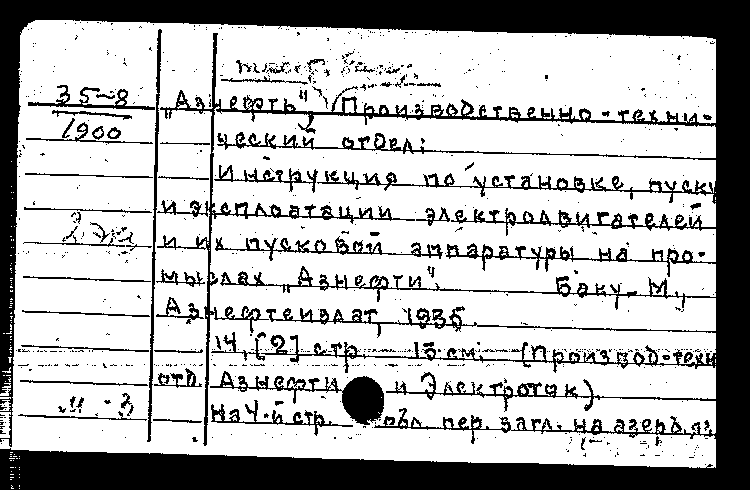 35-8
1900
„Азнефть", Производственно-техни-
ческий отдел:
Инструкция по установке, пуску
и эксплоатации электродвигателей
2 экз
и их пусковой аппаратуры на про-
мыслах „Азнефти". Баку-М.,
Азнефтеиздат, 1935.
14, [2] стр. 15 см. (Производ-техн
отд. Азнефти и Электроток).
На 4-й стр. обл. пер. загл. на азерб. яз.